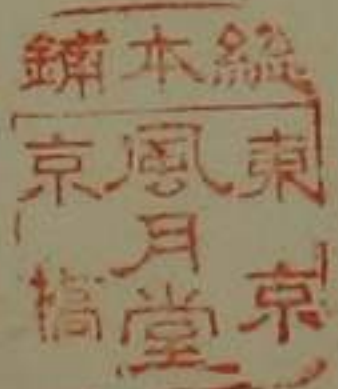 総本鋪
東京
風月堂
京橋